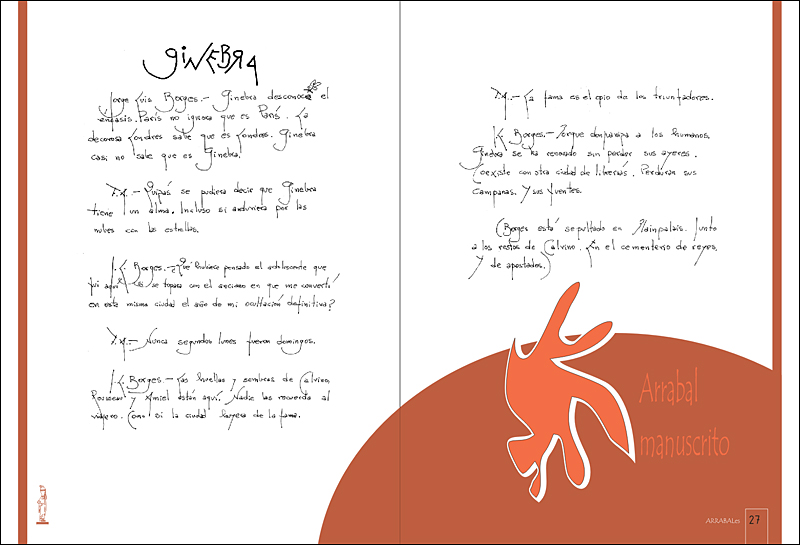 GiNEBRA
Jorge Luis Borges.- Ginebra desconoce el
énfasis. París no ignora que es París. La
decorosa Londres sabe que es Londres. Ginebra
casi no sabe que es Ginebra.
F.A.- Quizás se pudiera decir que Ginebra
tiene un alma. Incluso si anduviera por las
nubes con las estrellas.
J.L. Borges.- ¿Qué hubiese pensado el adolescente que
fui aquí si se topara con el anciano en que me convertí
en esta misma ciudad el año de mi ocultación definitiva?
F.A.- Nunca segundos lunes fueron domingos.
J.L. Borges.- Las huellas y sombras de Calvino,
Rousseau y Amiel están aquí. Nadie las recuerda al
viajero. Como si la ciudad huyera de la fama.
F.A.- La fama es el opio de los triunfadores.
J.L. Borges.- Porque desparpaja a los humanos,
Ginebra se ha renovado sin perder sus ayeres.
Coexiste con otra ciudad de librerías. Perduran sus
campanas. Y sus fuentes.
(Borges está sepultado en Plainpalais. Junto
a los restos de Calvino. En el cementerio de reyes,
y de apostados.)
Arrabal
manuscrito
ARRABALes 27